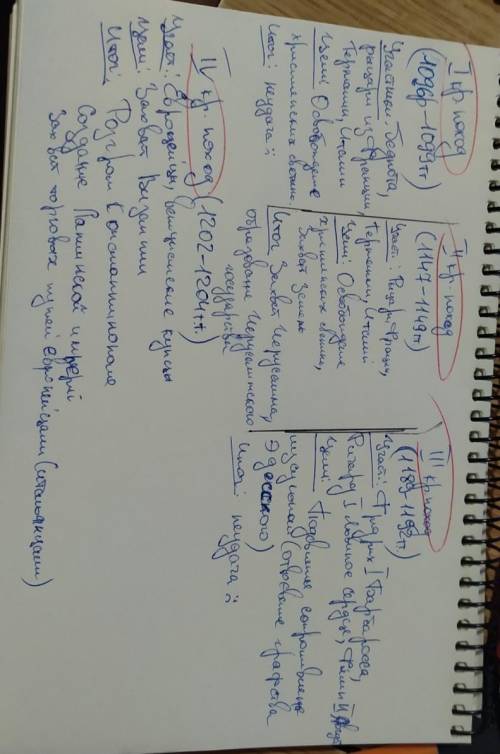 I кр. поход
(1096-1099гг.)
Участники: Беднота,
рыцари из Франции,
Германии, Италии
Цели: Освобождение
христианских святынь
Итог: неудача :(
II кр. поход
(1147-1149гг)
Участ: Рыцари Франции,
Германии, Италии
Цели: Освобождение
христианских святынь,
Захват земель
Итог Захват Иерусалима,
образование Иерусалимского
государства
III кр поход
(1189-1192гг.
Участ: Фридрих I Барбаросса,
Ричард I Львиное Сердце, Филипп II
Цели: Подавление сопротивления
мусульман (отвоевание графства
Эдесского)
Итог: неудача :(
IV кр. поход (1202-1204гг.)
Участ: Европейцы, венецианские купцы
Цели: Захват Византии
Итог: Разгром Константинополя
Создание Латинской империи
Захват торговых путей европейцами (итальянцами)